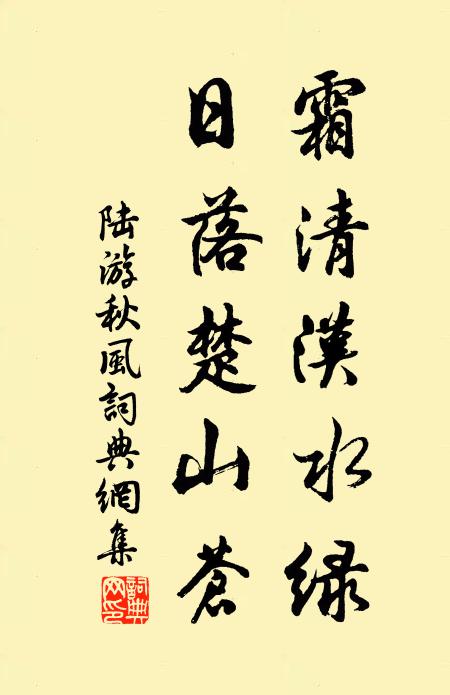 霜清漢水緑
日落楚山蒼
陆游秋風詞典網集
詞典網印